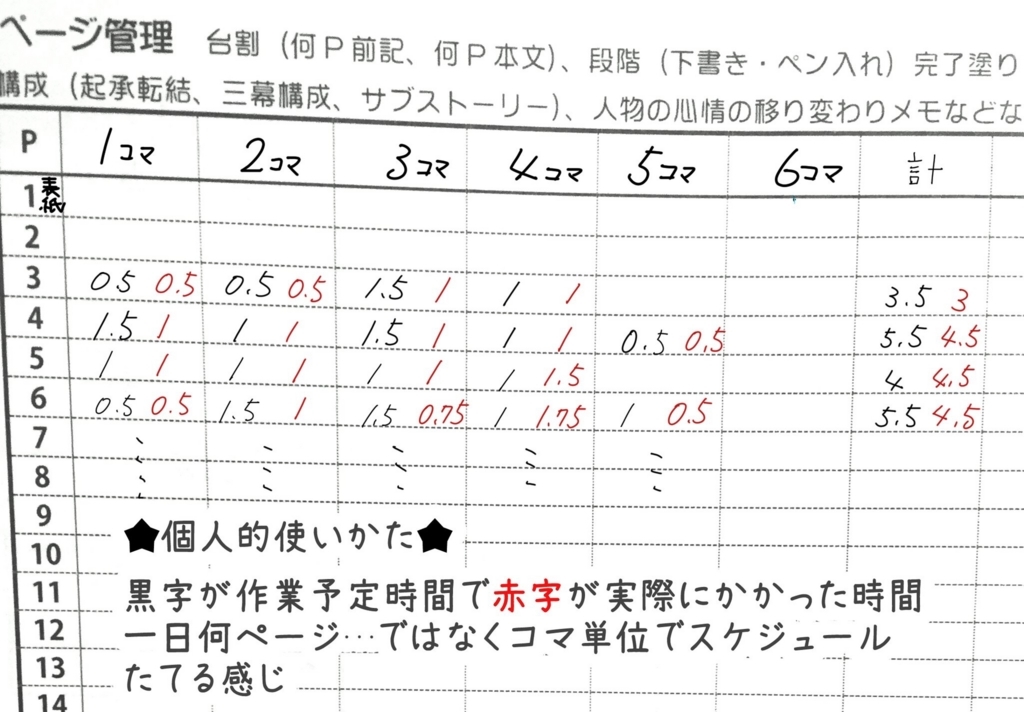 ページ管理 台割（何P前記、何P本文）、段階（下書き・ペン入れ）完了塗り
構成（起承転結、三幕構成、サブストーリー）、人物の心情の移り変わりメモなどな
P 1コマ 2コマ 3コマ 4コマ 5コマ 6コマ 計
1 表紙
2
3 0.5 0.5 0.5 0.5 1.5 1 1 1 3.5 3
4 1.5 1 1 1 1.5 1 1 1 0.5 0.5 5.5 4.5
5 1 1 1 1 1 1 1 1.5 4 4.5
6 0.5 0.5 1.5 1 1.5 0.75 1 1.75 1 0.5 5.5 4.5
7
8
9
★個人的使いかた★
10
11 黒字が作業予定時間で赤字が実際にかかった時間
12 一日何ページ…ではなくコマ単位でスケジュール
13 たてる感じ
14